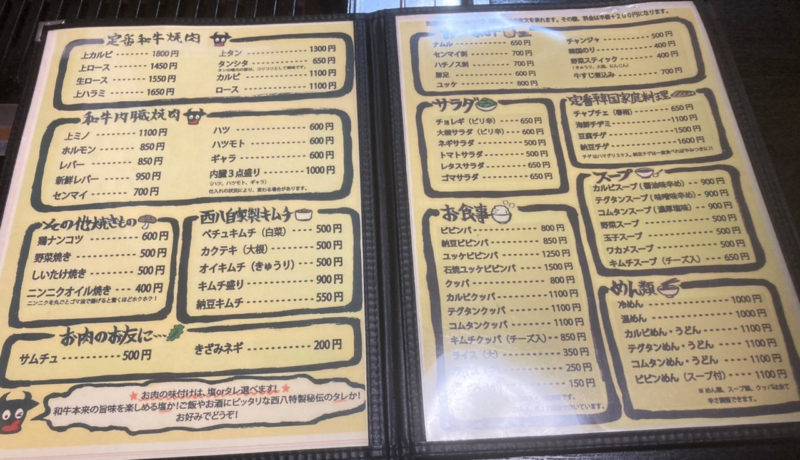 定番和牛焼肉
上カルビ 1800円
上ロース 1450円
生ロース 1550円
上ハラミ 1650円
上タン 1300円
タンシタ 650円
カルビ 1100円
ロース 1100円
和牛内臓焼肉
上ミノ 1100円
ホルモン 850円
レバー 850円
新鮮レバー 950円
センマイ 700円
ハツ 600円
ハツモト 600円
ギャラ 600円
内臓3点盛り 1000円
(ハツ、ハツモト、ギャラ)
仕入れの状況により、変わる場合があります。
その他焼きもの
鶏ナンコツ 600円
野菜焼き 500円
しいたけ焼き 500円
ニンニクオイル焼き 400円
ニンニクを丸ごとゴマ油で揚げると驚くほどホクホク!
西八自家製キムチ
ペチュキムチ(白菜) 500円
カクテキ(大根) 500円
オイキムチ(きゅうり) 500円
キムチ盛り 900円
納豆キムチ 550円
お肉のお友に…
サムチュ 500円
きざみネギ 200円
お肉の味付けは、塩orタレ選べます!
和牛本来の旨味を楽しめる塩か!ご飯やお酒にピッタリな西八特製秘伝のタレか!
お好みでどうぞ!
ナムル 650円
センマイ刺 700円
ハチノス刺 700円
豚足 600円
ユッケ 800円
チャンジャ 500円
韓国のり 400円
野菜スティック 400円
(きゅうり、大根、にんじん)
牛すじ煮込み 700円
サラダ
チョレギ(ピリ辛) 650円
大根サラダ(ピリ辛) 600円
ネギサラダ 500円
トマトサラダ 500円
レタスサラダ 650円
ゴマサラダ 650円
定番韓国家庭料理
チャプチェ(春雨) 650円
海鮮チヂミ 1100円
豆腐チゲ 1500円
納豆チゲ 1600円
お食事
ビビンバ 800円
納豆ビビンバ 850円
ユッケビビンバ 1250円
石焼ユッケビビンバ 1500円
クッパ 800円
カルビクッパ 1100円
テグタンクッパ 1100円
コムタンクッパ 1100円
キムチクッパ(チーズ入) 850円
ライス(大) 350円
250円
150円
スープ
カルビスープ(醤油味辛め) 900円
テグタンスープ(味噌味辛め) 900円
コムタンスープ(濃厚塩味) 900円
野菜スープ 500円
玉子スープ 500円
ワカメスープ 500円
キムチスープ(チーズ入) 650円
めん類
冷めん 1000円
温めん 1000円
カルビめん・うどん 1100円
テグタンめん・うどん 1100円
コムタンめん・うどん 1100円
ビビンめん(スープ付) 1100円
※めん類、スープ類、クッパは全て
辛さ調整できます。